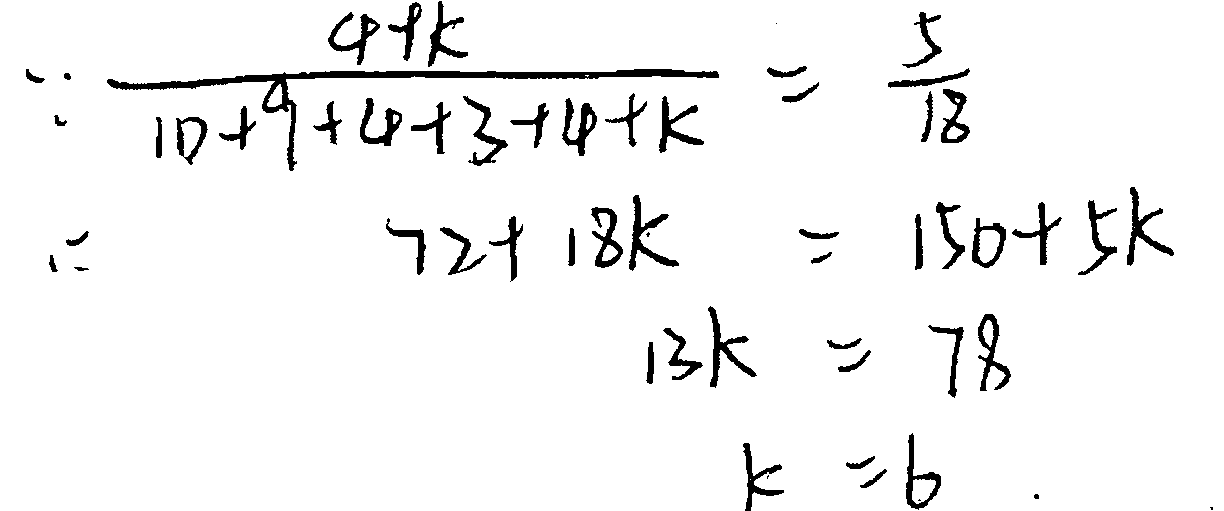 ∵ \frac{4+k}{10+9+4+3+4+k} = \frac{5}{18}
∴ 72+18k = 150+5k
13k = 78
k = 6.